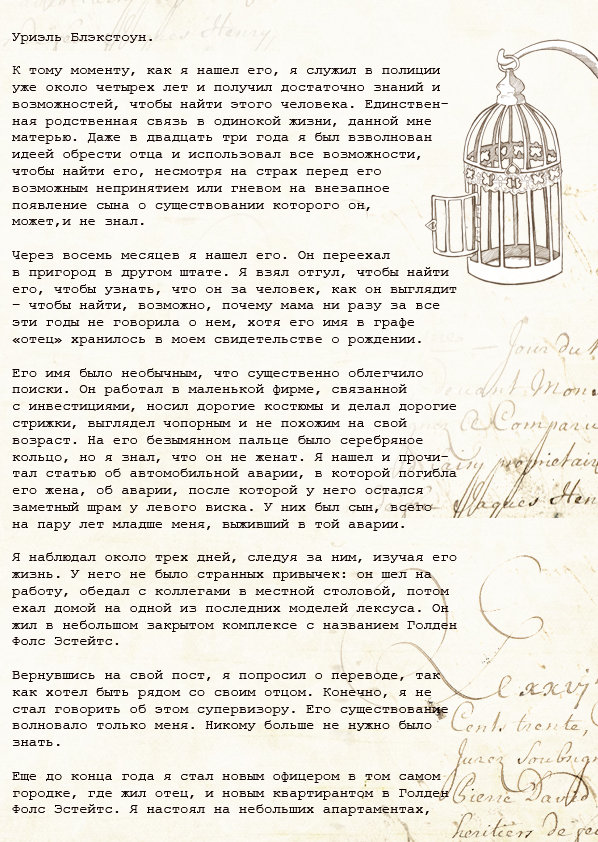 Уриэль Блэкстоун.
К тому моменту, как я нашел его, я служил в полиции
уже около четырех лет и получил достаточно знаний и
возможностей, чтобы найти этого человека. Единствен-
ная родственная связь в одинокой жизни, данной мне
матерью. Даже в двадцать три года я был взволнован
идеей обрести отца и использовал все возможности,
чтобы найти его, несмотря на страх перед его
возможным непринятием или гневом на внезапное
появление сына о существовании которого он,
может,и не знал.
Через восемь месяцев я нашел его. Он переехал
в пригород в другом штате. Я взял отгул, чтобы найти
его, чтобы узнать, что он за человек, как он выглядит
– чтобы найти, возможно, почему мама ни разу за все
эти годы не говорила о нем, хотя его имя в графе
«отец» хранилось в моем свидетельстве о рождении.
Его имя было необычным, что существенно облегчило
поиски. Он работал в маленькой фирме, связанной
с инвестициями, носил дорогие костюмы и делал дорогие
стрижки, выглядел чопорным и не похожим на свой
возраст. На его безымянном пальце было серебряное
кольцо, но я знал, что он не женат. Я нашел и прочи-
тал статью об автомобильной аварии, в которой погибла
его жена, об аварии, после которой у него остался
заметный шрам у левого виска. У них был сын, всего
на пару лет младше меня, выживший в той аварии.
Я наблюдал около трех дней, следуя за ним, изучая его
жизнь. У него не было странных привычек: он шел на
работу, обедал с коллегами в местной столовой, потом
ехал домой на одной из последних моделей лексуса. Он
жил в небольшом закрытом комплексе с названием Голден
Фолс Эстейтс.
Вернувшись на свой пост, я попросил о переводе, так
как хотел быть рядом со своим отцом. Конечно, я не
стал говорить об этом супервизору. Его существование
волновало только меня. Никому больше не нужно было
знать.
Еще до конца года я стал новым офицером в том самом
городке, где жил отец, и новым квартирантом в Голден
Фолс Эстейтс. Я настоял на небольших апартаментах,
Jour du
Mon
Compar
proprietair
Jaques Hen
xxvj
Cents trente,
Jurez Soubsign
Pierre David
heritiers de feu